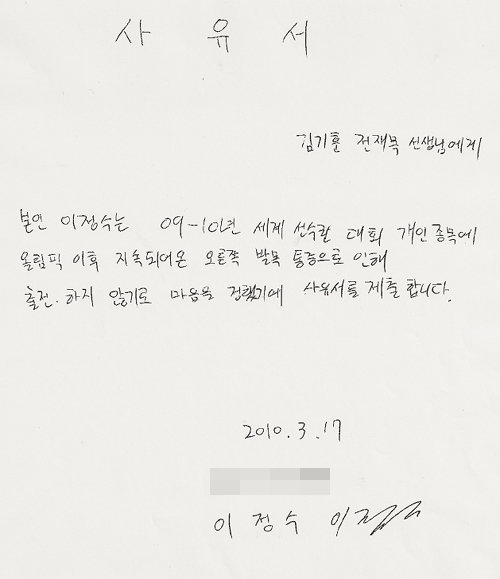 사 유 서
김기훈 전재목 선생님에게
본인 이정수는 09-10년 세계 선수권 대회 개인종목에
올림픽 이후 지속되어온 오른쪽 발목 통증으로 인해
출전.하지 않기로 마음을 정했기에 사유서를 제출합니다.
2010.3.17
이 정 수